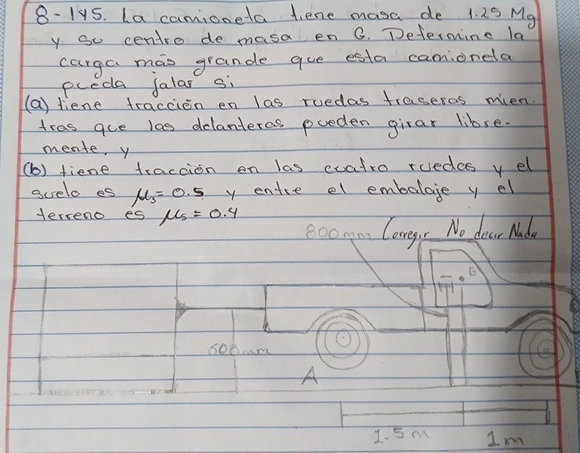 8-145. La camioneta tiene masa de 1.25 Mg
y su centro de masa en G. Determine la
carga más grande que esta camioneta
pueda jalar si
(a) tiene tracción en las ruedas traseras mien-
tras que las delanteras pueden girar libre-
mente, y
(b) tiene tracción en las cuatro ruedas y el
suelo es μs = 0.5 y entre el embalaje y el
terreno es μs = 0.4
800mm Corregir No decir Nada
G
600mm
A
1.5m 1m